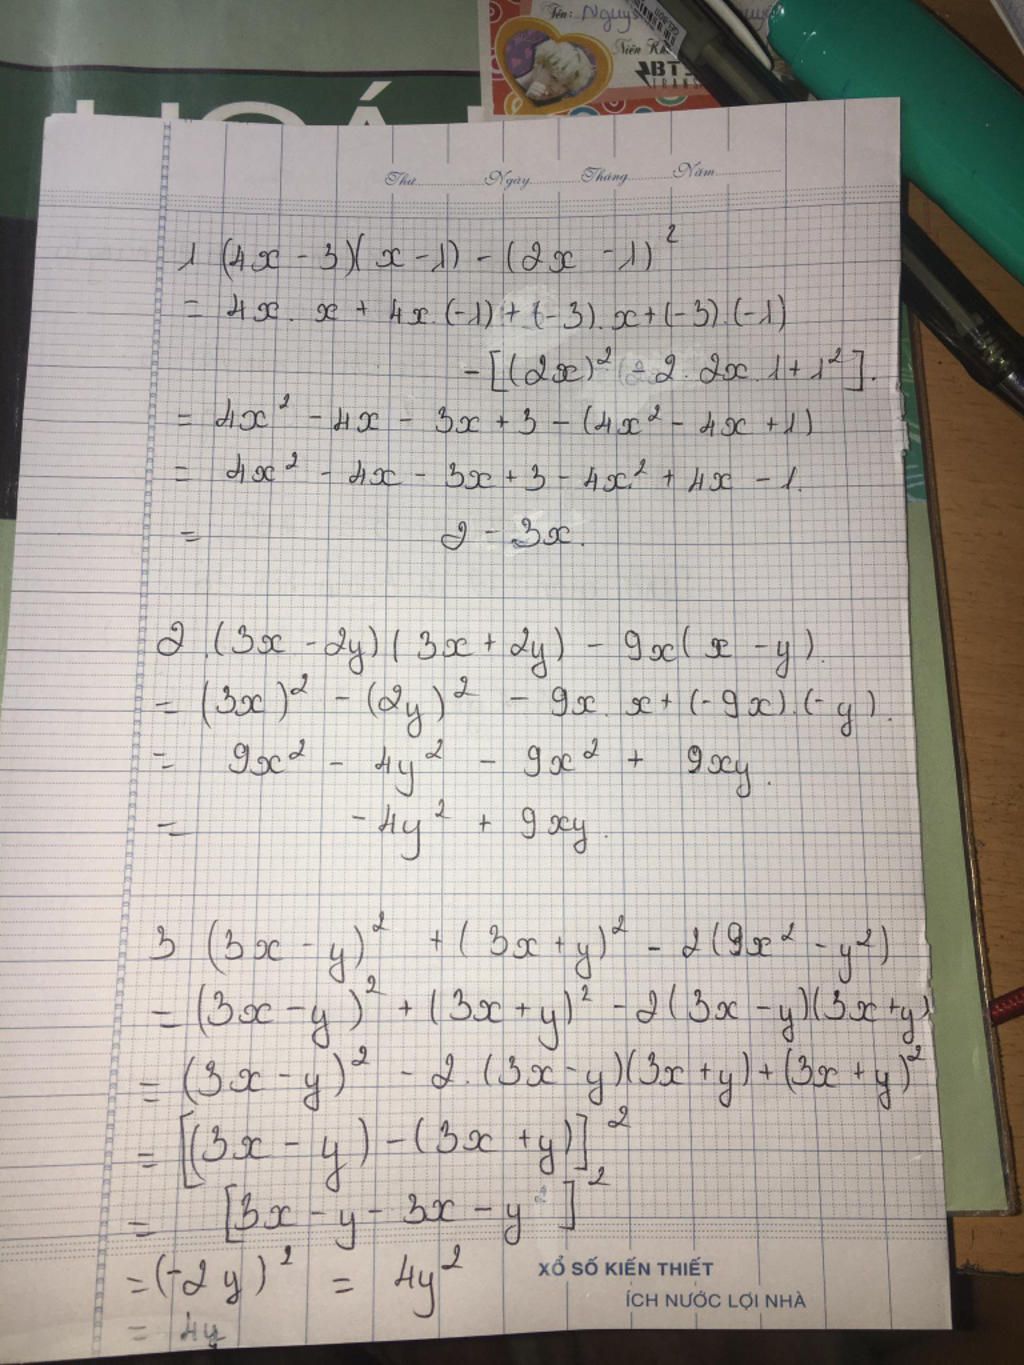 HOÁ
Tên: Nguy
Niên Kh
BTS
TRANS
Thứ Ngày Tháng Năm
1 (4x - 3)(x - 1) - (2x - 1)²
= 4x . x + 4x.(-1) + (-3).x + (-3).(-1)
- [(2x)² - 2. 2x.1 + 1²].
= 4x² - 4x - 3x + 3 - (4x² - 4x + 1)
= 4x² - 4x - 3x + 3 - 4x² + 4x - 1.
= 2 - 3x.
2.(3x - 2y)(3x + 2y) - 9x(x - y).
= (3x)² - (2y)² - 9x. x + (-9x).(-y).
= 9x² - 4y² - 9x² + 9xy.
= -4y² + 9xy.
3 (3x - y)² + (3x + y)² - 2(9x² - y²)
= (3x - y)² + (3x + y)² - 2(3x - y)(3x + y)
= (3x - y)² - 2.(3x - y)(3x + y) + (3x + y)²
= [(3x - y) - (3x + y)]²
= [3x - y - 3x - y]²
= (-2y)² = 4y²
= 4y
XỔ SỐ KIẾN THIẾT
ÍCH NƯỚC LỢI NHÀ